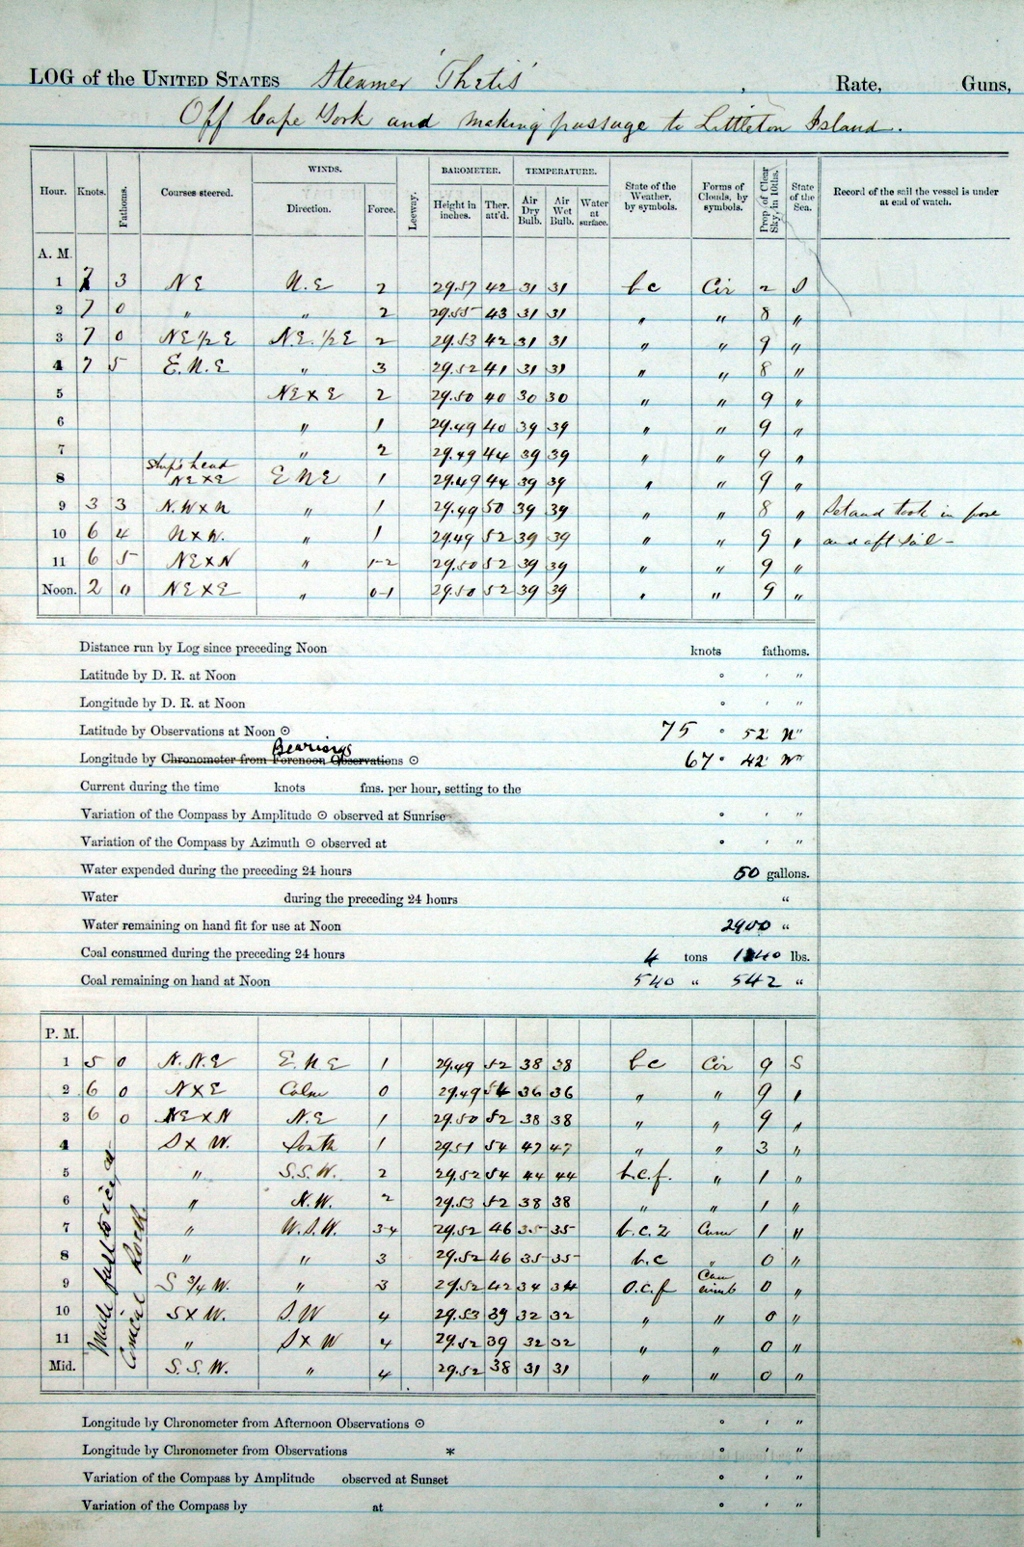 LOG of the UNITED STATES Steamer 'Thetis' , Rate, Guns,
Off Cape York and making passage to Littleton Island.
Hour. Knots. Fathoms. Courses steered. WINDS. Direction. Force. Leeway. BAROMETER. Height in inches. Ther. att'd. TEMPERATURE. Air Dry Bulb. Air Wet Bulb. Water at surface. State of the Weather, by symbols. Forms of Clouds, by symbols. Prop. of Clear Sky, in 10ths. State of the Sea. Record of the sail the vessel is under at end of watch.
A. M.
1 7 3 NE N.E 2 29.57 42 31 31 bc Cir 2 S
2 7 0 " " 2 29.55 43 31 31 " " 8 "
3 7 0 NE 1/2 E N.E. 1/2 E 2 29.53 42 31 31 " " 9 "
4 7 5 E.N.E " 3 29.52 41 31 31 " " 8 "
5 NE x E 2 29.50 40 30 30 " " 9 "
6 " 1 29.49 40 39 39 " " 9 "
7 " 2 29.49 44 39 39 " " 9 "
8 Ship's head NE x E E N E 1 29.49 44 39 39 " " 9 "
9 3 3 N.W x N " 1 29.49 50 39 39 " " 8 " Set and took in fore
10 6 4 N x W. " 1 29.49 52 39 39 " " 9 " and aft sail -
11 6 5 NE x N " 1-2 29.50 52 39 39 " " 9 "
Noon. 2 " NE x E " 0-1 29.50 52 39 39 " " 9 "
Distance run by Log since preceding Noon knots fathoms.
Latitude by D. R. at Noon ° ' "
Longitude by D. R. at Noon ° ' "
Latitude by Observations at Noon ☉ 75 ° 52' N"
Longitude by Chronometer from Forenoon Observations ☉ Bearings 67 ° 42' W"
Current during the time knots fms. per hour, setting to the
Variation of the Compass by Amplitude ☉ observed at Sunrise ° ' "
Variation of the Compass by Azimuth ☉ observed at ° ' "
Water expended during the preceding 24 hours 50 gallons.
Water during the preceding 24 hours "
Water remaining on hand fit for use at Noon 2900 "
Coal consumed during the preceding 24 hours 4 tons lbs.
Coal remaining on hand at Noon 540 " 542 "
P. M.
1 5 0 N.N.E E.N E 1 29.49 52 38 38 bc Cir 9 S
2 6 0 N x E Calm 0 29.49 54 36 36 " " 9 "
3 6 0 NE x N N.E 1 29.50 52 38 38 " " 9 "
4 S x W. South 1 29.51 54 47 47 " " 3 "
5 " S.S.W. 2 29.52 54 44 44 b.c.f. " 1 "
6 " N.W. 2 29.53 52 38 38 " " 1 "
7 " W.S.W. 3-4 29.52 46 35 35 b.c.z Cum 1 "
8 " " 3 29.52 46 35 35 b.c " 0 "
9 S 3/4 W. " 3 29.52 42 34 34 o.c.f Cum nimb 0 "
10 S x W. S.W 4 29.53 39 32 32 " " 0 "
11 " S x W 4 29.52 39 32 32 " " 0 "
Mid. S.S.W. " 4 29.52 38 31 31 " " 0 "
Made fast to ice,
Conical Rock.
Longitude by Chronometer from Afternoon Observations ☉ ° ' "
Longitude by Chronometer from Observations * ° ' "
Variation of the Compass by Amplitude observed at Sunset ° ' "
Variation of the Compass by at ° ' "